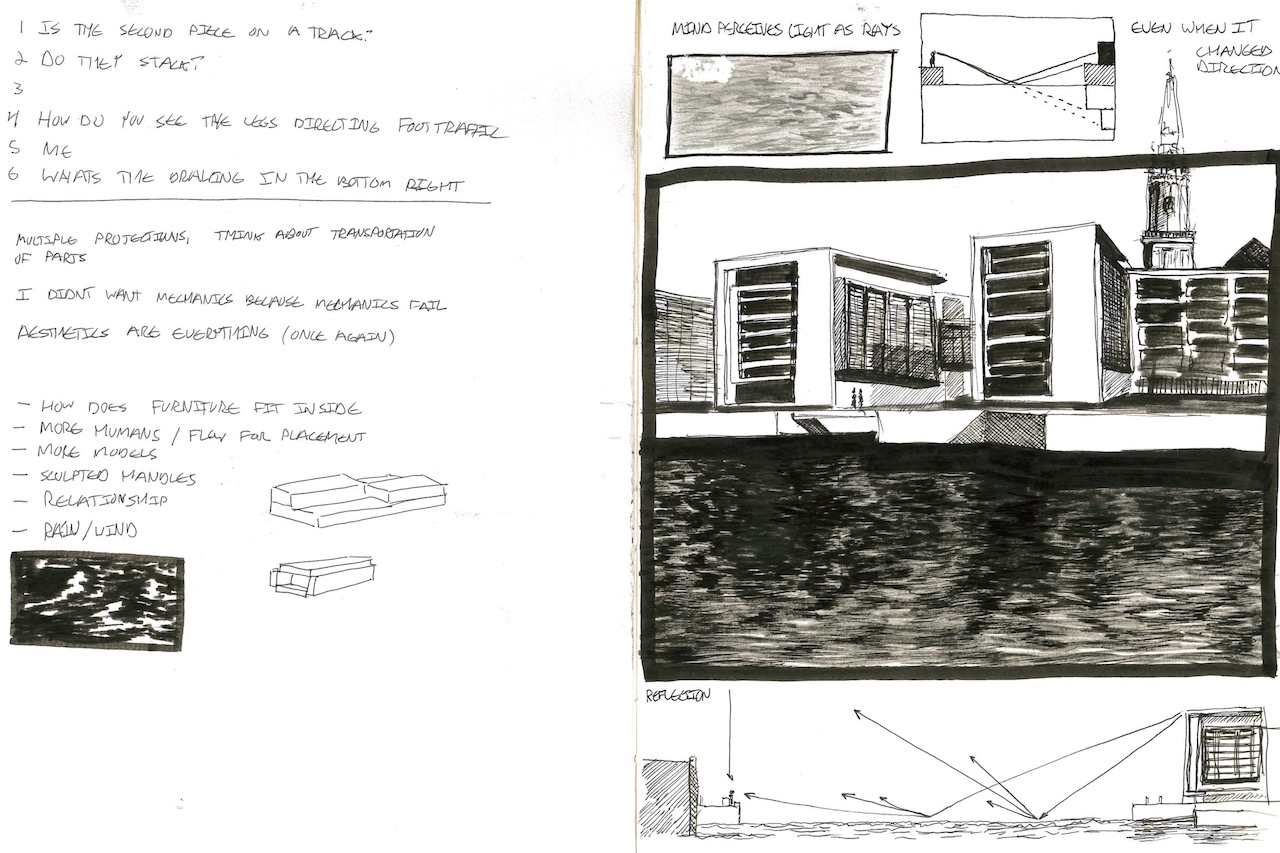 1 IS THE SECOND PIECE ON A TRACK?
2 DO THEY STACK?
3
4 HOW DO YOU SEE THE LEGS DIRECTING FOOT TRAFFIC
5 ME
6 WHATS THE DRAWING IN THE BOTTOM RIGHT
MULTIPLE PROJECTIONS, THINK ABOUT TRANSPORTATION
OF PARTS
I DIDNT WANT MECHANICS BECAUSE MECHANICS FAIL
AESTHETICS ARE EVERYTHING (ONCE AGAIN)
- HOW DOES FURNITURE FIT INSIDE
- MORE HUMANS / FLOW FOR PLACEMENT
- MORE MODELS
- SCULPTED HANDLES
- RELATIONSHIP
- RAIN/WIND
MIND PERCEIVES LIGHT AS RAYS
EVEN WHEN IT
CHANGED
DIRECTION
REFLECTION